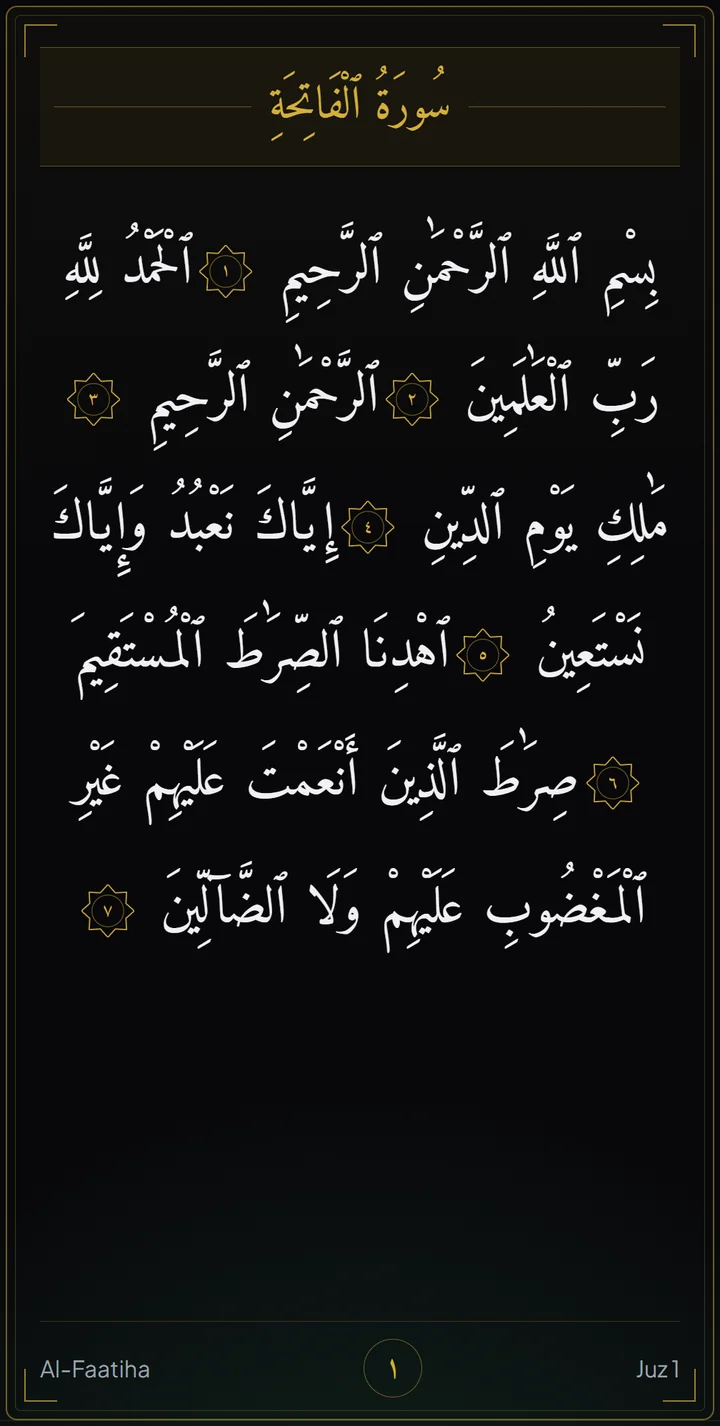 سُورَةُ ٱلْفَاتِحَةِ
بِسْمِ ٱللَّهِ ٱلرَّحْمَٰنِ ٱلرَّحِيمِ ١ ٱلْحَمْدُ لِلَّهِ
رَبِّ ٱلْعَٰلَمِينَ ٢ ٱلرَّحْمَٰنِ ٱلرَّحِيمِ ٣
مَٰلِكِ يَوْمِ ٱلدِّينِ ٤ إِيَّاكَ نَعْبُدُ وَإِيَّاكَ
نَسْتَعِينُ ٥ ٱهْدِنَا ٱلصِّرَٰطَ ٱلْمُسْتَقِيمَ
٦ صِرَٰطَ ٱلَّذِينَ أَنْعَمْتَ عَلَيْهِمْ غَيْرِ
ٱلْمَغْضُوبِ عَلَيْهِمْ وَلَا ٱلضَّآلِّينَ ٧
Al-Faatiha ١ Juz 1